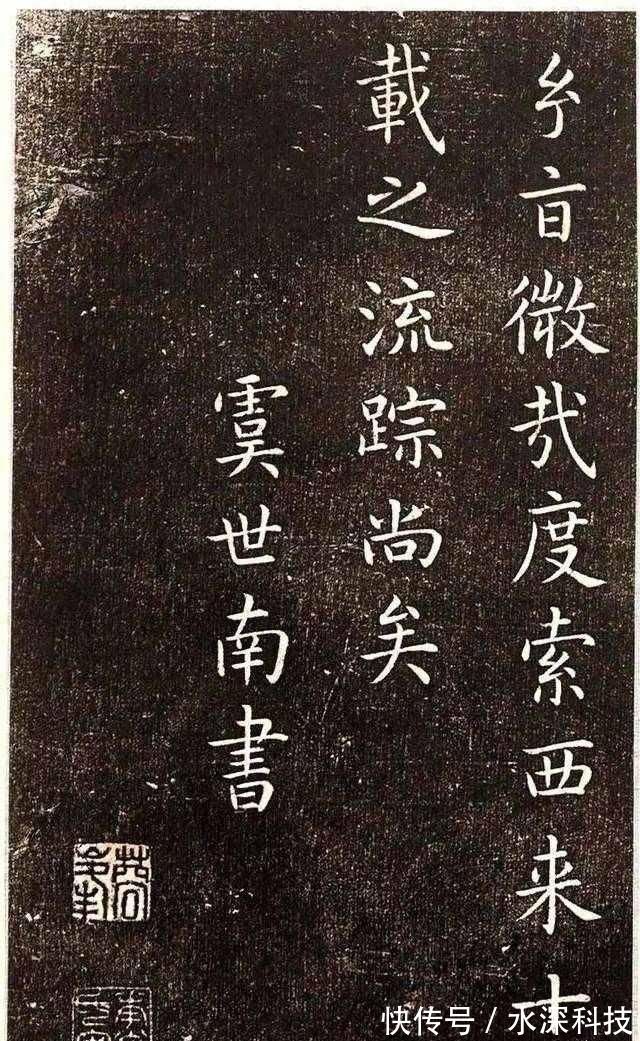 微哉度索西来
載之流踪尚矣
虞世南書
快传号 / 水深科技